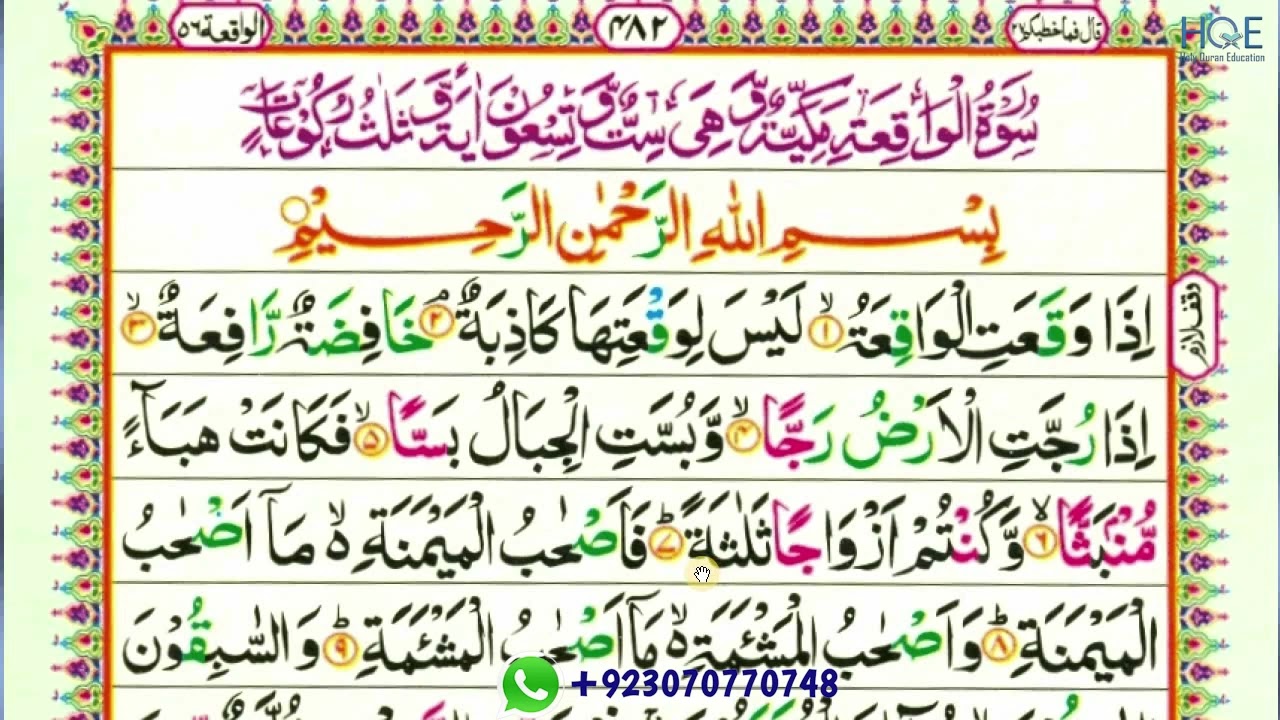 الواقعة ٥٦
٤٨٢
قال فما خطبكم ٢٧
HQE
Holy Quran Education
سُوۡرَةُ الۡوَاقِعَةِ مَكِّيَّةٌ وَّ هِىَ سِتٌّ وَّ تِسۡعُوۡنَ اٰيَةً وَّ ثَلٰثُ رُكُوۡعَاتٍ
بِسۡمِ اللهِ الرَّحۡمٰنِ الرَّحِيۡمِ
اِذَا وَقَعَتِ الۡوَاقِعَةُ ۙ‏﴿۱﴾ لَيۡسَ لِوَقۡعَتِهَا كَاذِبَةٌ ۘ‏﴿۲﴾ خَافِضَةٌ رَّافِعَةٌ ۙ‏﴿۳﴾
وقف لازم
اِذَا رُجَّتِ الۡاَرۡضُ رَجًّا ۙ‏﴿۴﴾ وَّبُسَّتِ الۡجِبَالُ بَسًّا ۙ‏﴿۵﴾ فَكَانَتۡ هَبَآءً
مُّنۡۢبَثًّا ۙ‏﴿۶﴾ وَّكُنۡتُمۡ اَزۡوَاجًا ثَلٰثَةً ؕ‏﴿۷﴾ فَاَصۡحٰبُ الۡمَيۡمَنَةِ ۙ مَاۤ اَصۡحٰبُ
الۡمَيۡمَنَةِ ؕ‏﴿۸﴾ وَاَصۡحٰبُ الۡمَشۡـَٔمَةِ ۙ مَاۤ اَصۡحٰبُ الۡمَشۡـَٔمَةِ ؕ‏﴿۹﴾ وَالسّٰبِقُوۡنَ
+923070770748